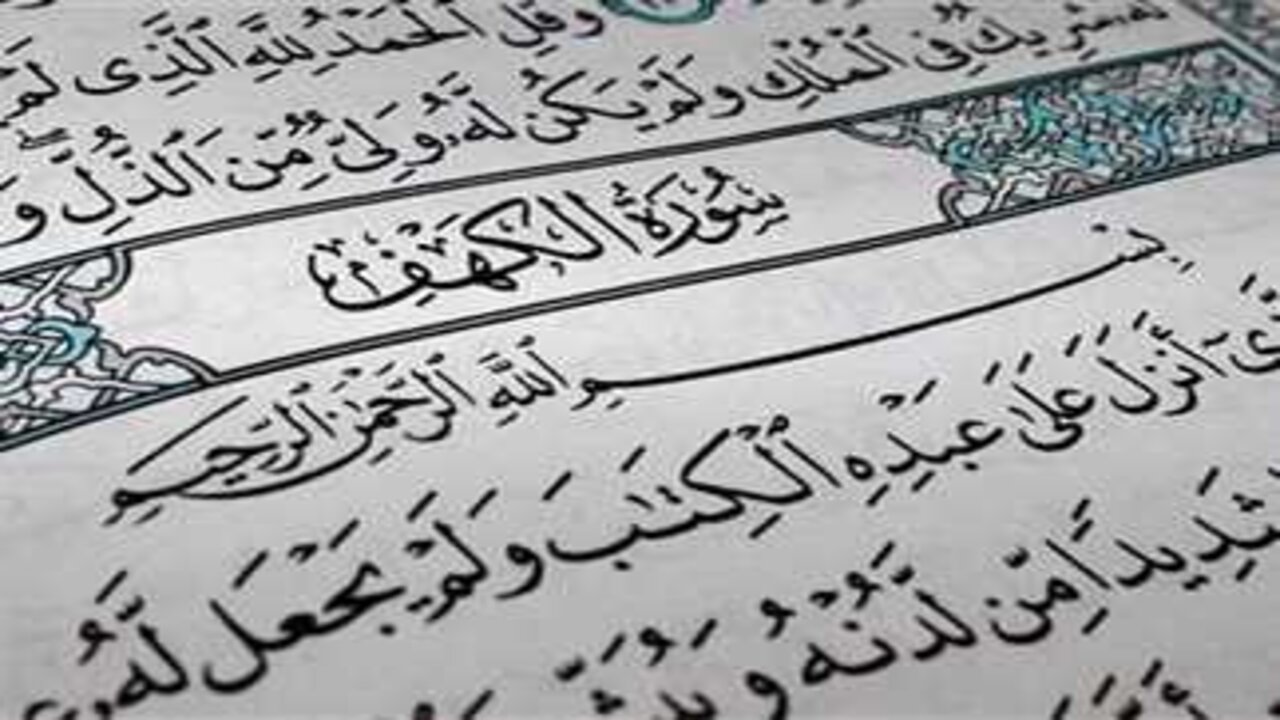 وَقُلِ ٱلْحَمْدُ لِلَّهِ ٱلَّذِى لَمْ
لَّهُۥ شَرِيكٌ فِى ٱلْمُلْكِ وَلَمْ يَكُن لَّهُۥ وَلِىٌّ مِّنَ ٱلذُّلِّ ۖ وَ
سُورَةُ الكَهْفِ
بِسْمِ ٱللَّهِ ٱلرَّحْمَٰنِ ٱلرَّحِيمِ
أَنزَلَ عَلَىٰ عَبْدِهِ ٱلْكِتَٰبَ وَلَمْ يَجْعَل لَّهُۥ
شَدِيدًا مِّن لَّدُنْهُ